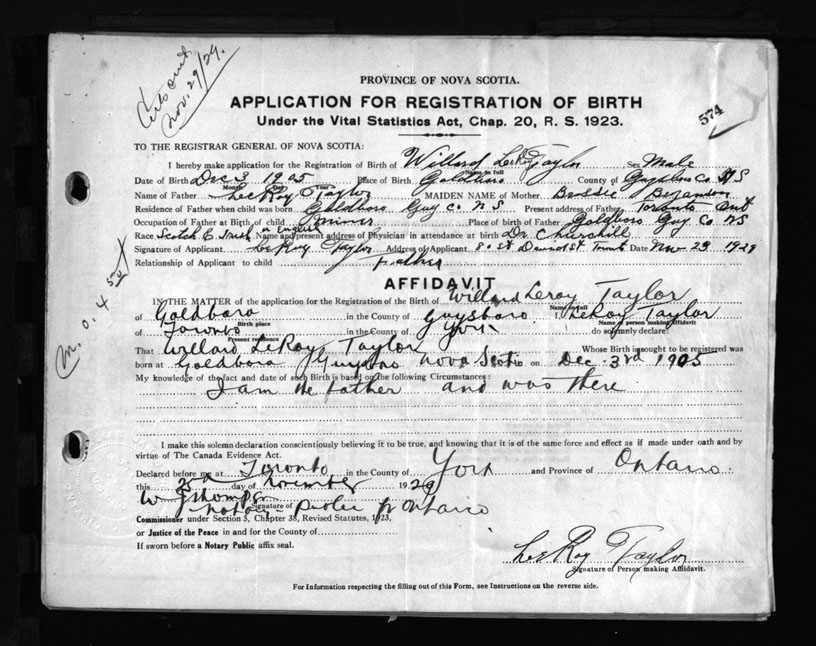 Nov. 29/29.
574
PROVINCE OF NOVA SCOTIA.
APPLICATION FOR REGISTRATION OF BIRTH
Under the Vital Statistics Act, Chap. 20, R. S. 1923.
TO THE REGISTRAR GENERAL OF NOVA SCOTIA:
I hereby make application for the Registration of Birth of Willard LeRoy Taylor Sex Male
Name in full
Date of Birth Dec 3 1905 Place of Birth Goldboro County of Guysboro Co NS
Month Day Year
Name of Father LeeRoy Taylor MAIDEN NAME of Mother Bessie
Residence of Father when child was born Goldboro Guy C. NS Present address of Father Toronto Ont
Occupation of Father at Birth of child Place of birth of Father Goldboro Guy Co NS
Race Scotch & Irish or English Name and present address of Physician in attendance at birth Dr Churchill
Signature of Applicant LeRoy Taylor Address of Applicant Date Nov 23 1929
Relationship of Applicant to child Father
AFFIDAVIT
IN THE MATTER of the application for the Registration of the Birth of Willard Leroy Taylor
Name in full
of Goldboro in the County of Guysboro I, LeRoy Taylor
Birth place Name of person making Affidavit
of Toronto in the County of York do solemnly declare:
Present residence
That Willard LeRoy Taylor Whose Birth is sought to be registered was
born at Goldboro Guysboro Nova Scotia on Dec 3rd 1905
My knowledge of the fact and date of such Birth is based on the following Circumstances:
I am the father and was there
I make this solemn declaration conscientiously believing it to be true, and knowing that it is of the same force and effect as if made under oath and by
virtue of The Canada Evidence Act.
Declared before me at Toronto in the County of York and Province of Ontario
this day of November 1929
Signature of
Notary Public Ontario
Commissioner under Section 5, Chapter 38, Revised Statutes, 1923,
or Justice of the Peace in and for the County of
If sworn before a Notary Public affix seal.
LeeRoy Taylor
Signature of Person making Affidavit.
For Information respecting the filling out of this Form, see Instructions on the reverse side.